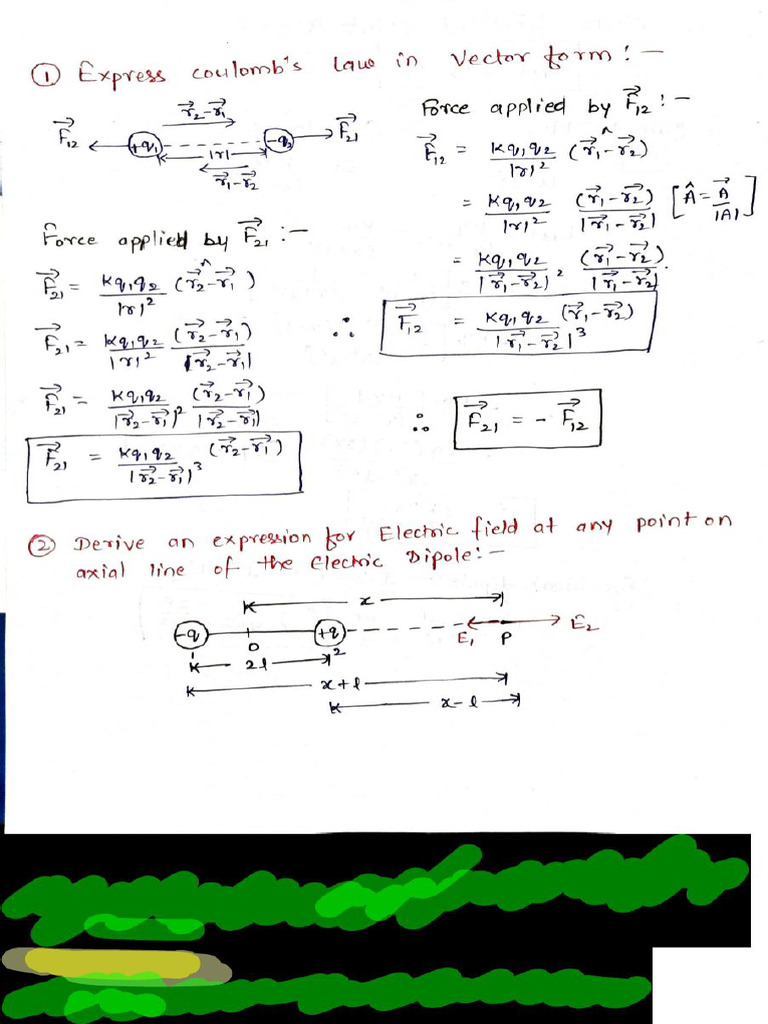 ① Express coulomb's law in vector form:-
F⃗12 +q1 r⃗2-r⃗1 |r| r⃗1-r⃗2 -q2 F⃗21
Force applied by F⃗21:-
F⃗21 = Kq1q2/|r|² (r⃗2-r⃗1)^
F⃗21 = Kq1q2/|r|² (r⃗2-r⃗1)/|r⃗2-r⃗1|
F⃗21 = Kq1q2/|r⃗2-r⃗1|² (r⃗2-r⃗1)/|r⃗2-r⃗1|
F⃗21 = Kq1q2/|r⃗2-r⃗1|³ (r⃗2-r⃗1)
Force applied by F⃗12:-
F⃗12 = Kq1q2/|r|² (r⃗1-r⃗2)^
= Kq1q2/|r|² (r⃗1-r⃗2)/|r⃗1-r⃗2| [Â=A⃗/|A|]
= Kq1q2/|r⃗1-r⃗2|² (r⃗1-r⃗2)/|r⃗1-r⃗2|.
∴ F⃗12 = Kq1q2/|r⃗1-r⃗2|³ (r⃗1-r⃗2)
∴ F⃗21 = - F⃗12
② Derive an expression for Electric field at any point on
axial line of the Electric Dipole:-
x
-q O +q E1 P E2
2l 2
x+l
x-l